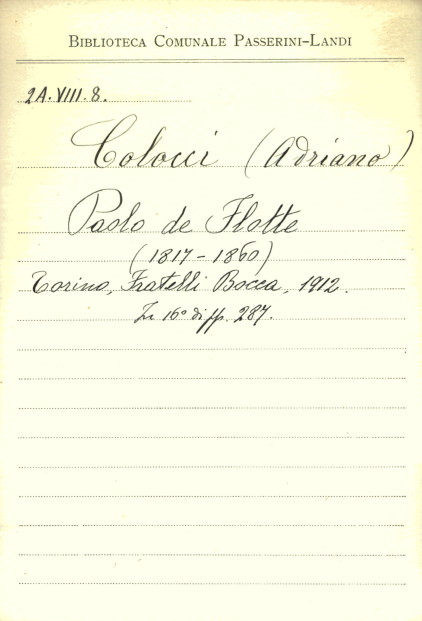 BIBLIOTECA COMUNALE PASSERINI-LANDI
2A.VIII.8.
Colocci (Adriano)
Paolo de Flotte
(1817-1860)
Torino, Fratelli Bocca, 1912.
In 16° di pp. 287.